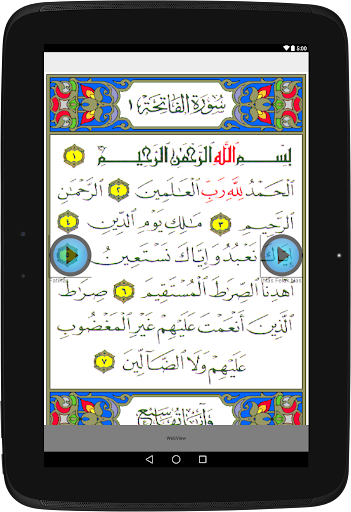 5:00
سورة الفاتحة ١
بسم الله الرحمن الرحيم ١
الحمد لله رب العلمين ٢ الرحمن
الرحيم ٣ ملك يوم الدين ٤
إياك نعبد وإياك نستعين
اهدنا الصرط المستقيم ٦ صرط
الذين أنعمت عليهم غير المغضوب
عليهم ولا الضالين ٧
وآياتها سبع
WebView